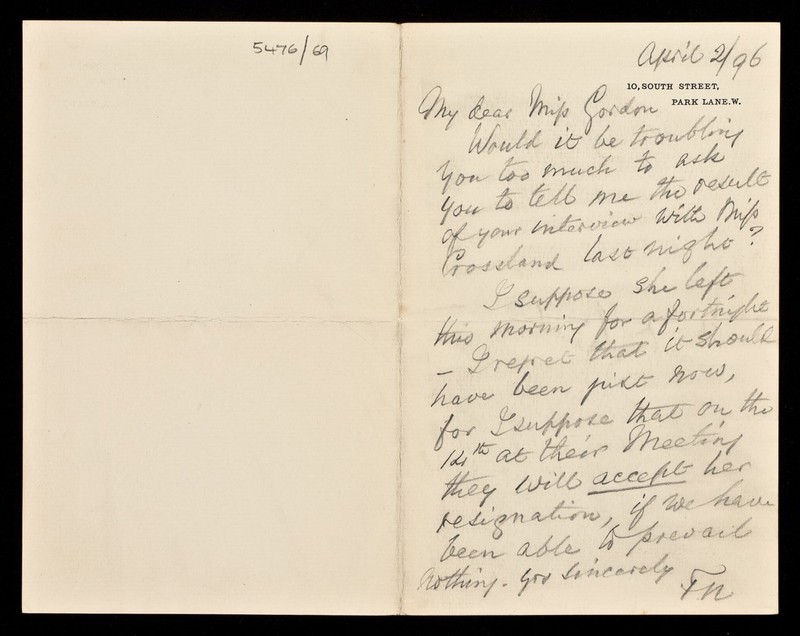 5476/69
April 2/96
10, SOUTH STREET,
PARK LANE. W.
My dear Miss Gordon
Would it be troubling
you too much to ask
you to tell me the result
of your interview with Miss
Crossland last night?
I suppose she left
this morning for a fortnight
- I regret that it should
have been just now,
for I suppose that on the
14th at their Meeting
they will accept her
resignation, if we have
been able to prevail
nothing. yrs sincerely
FN